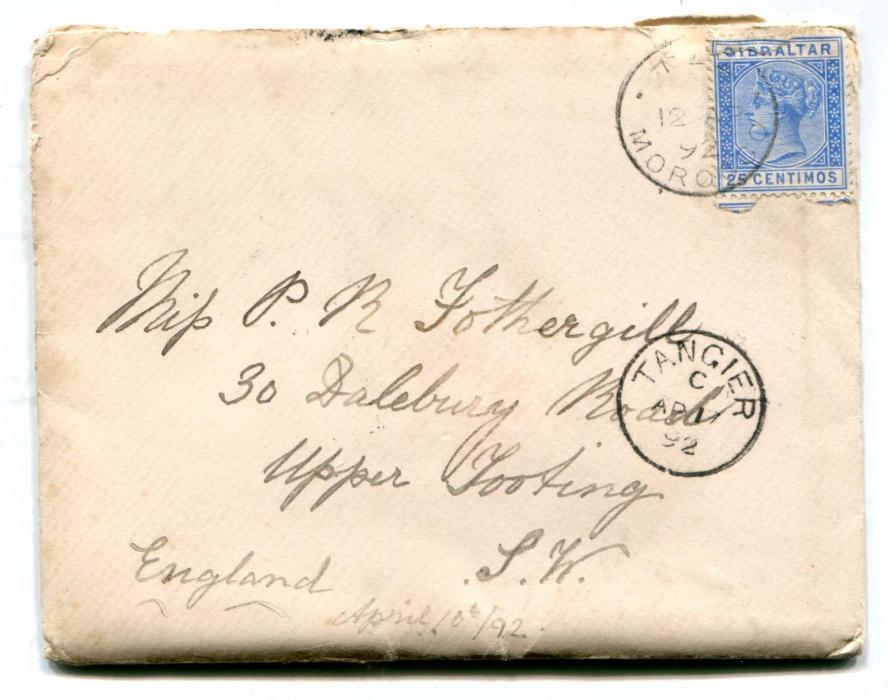 GIBRALTAR
25 CENTIMOS
12
92
MORO
Miss P. R Fothergill
30 Dalebury Road
Upper Tooting
S.W.
England
April 10th/92.
TANGIER
C
AP
92